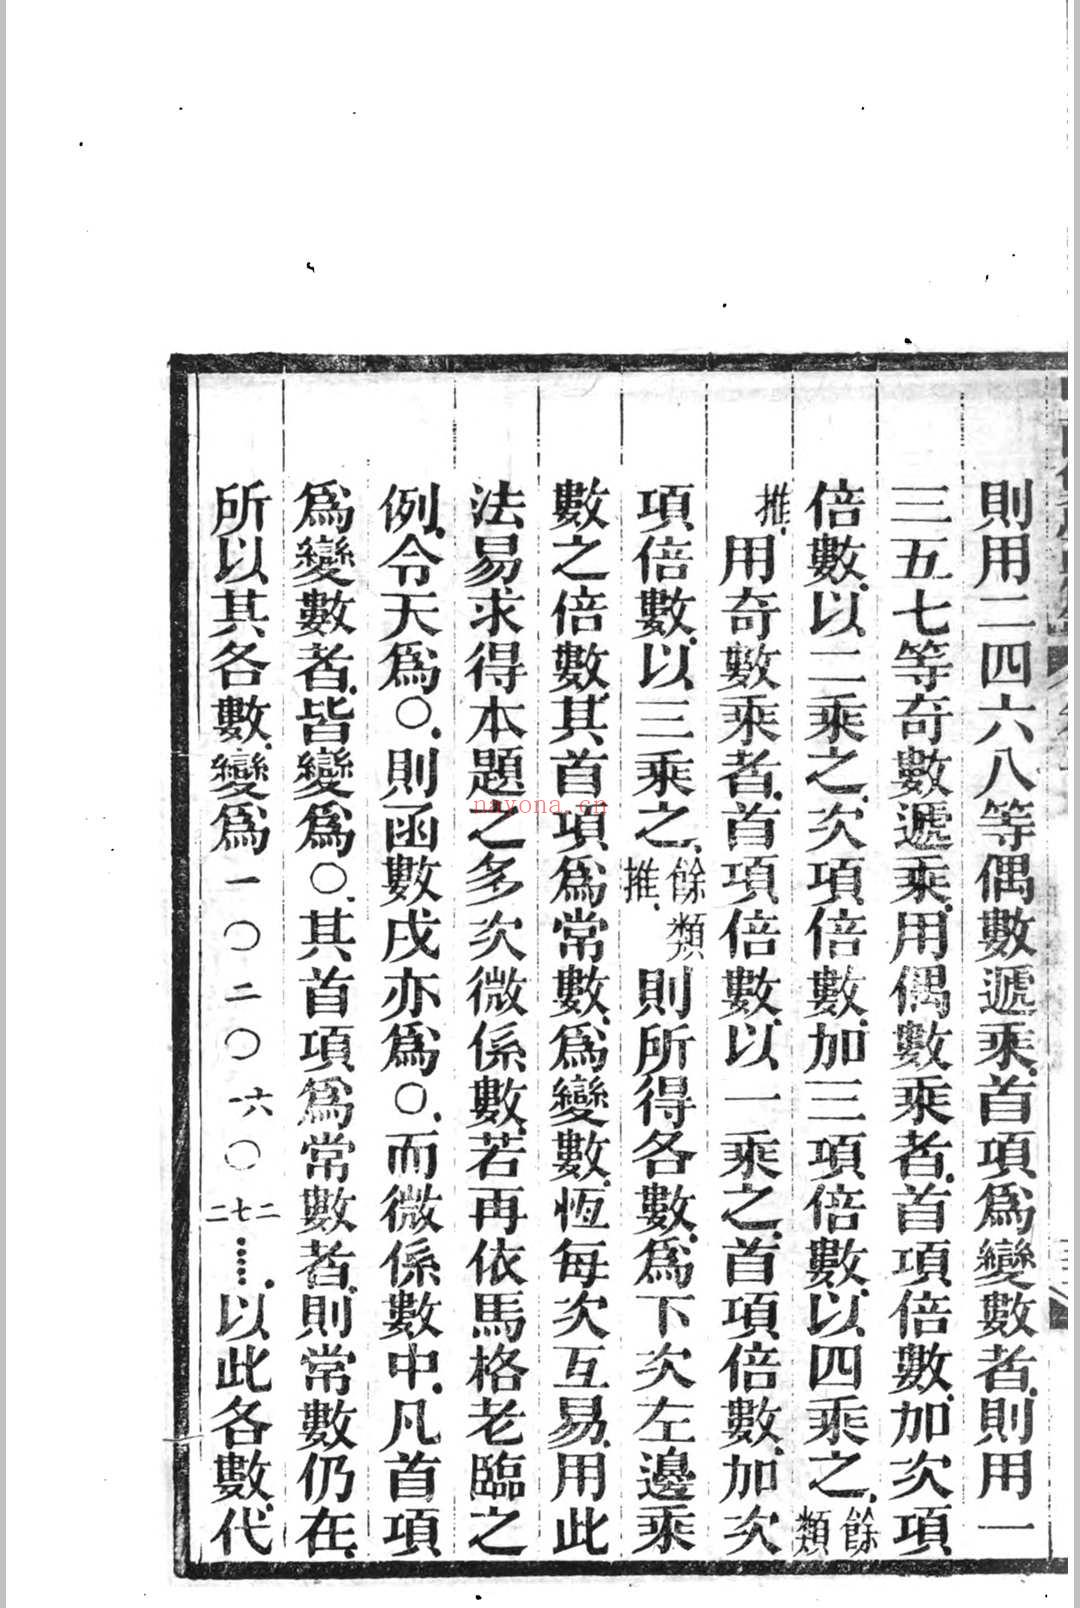 則用二四六八等偶數遞乘。首項爲變數者。則用一
三五七等奇數遞乘。用偶數乘者。首項倍數。加次項
倍數。以二乘之。次項倍數。加三項倍數。以四乘之。餘類
推。用奇數乘者。首項倍數。以一乘之。首項倍數。加次
項倍數。以三乘之。餘類推。則所得各數。爲下次左邊乘
數之倍數。其首項爲常數。爲變數。恆每次互易。用此
法易求得本題之多次微係數。若再依馬格老臨之
例。令天爲〇。則函數戌亦爲〇。而微係數中。凡首項
爲變數者。皆變爲〇。其首項爲常數者。則常數仍在。
所以其各數。變爲一〇二〇一六〇二七二……。以此各數。代
nayona.cn